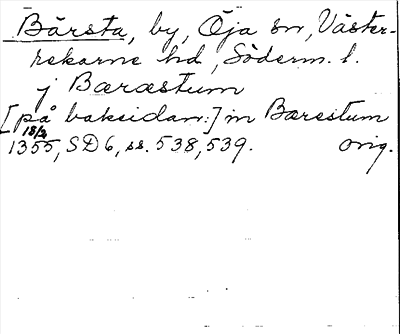 Bärsta, by, Öja sn, Väster-
rekarne hd, Söderm. l.
j Baræstum
[på baksidan:] in Bærestum
18/2
1355, SD 6, ss. 538, 539. orig.